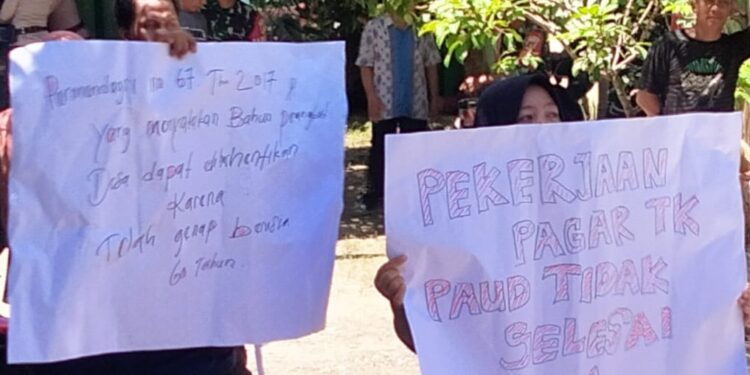 Permendagri no 67 Th 2017
Yang menyatakan Bahwa perangkat
Desa dapat diberhentikan
Karena
Telah genap berusia
60 Tahun.
PEKERJAAN
PAGAR TK
PAUD TIDAK
SELESAI